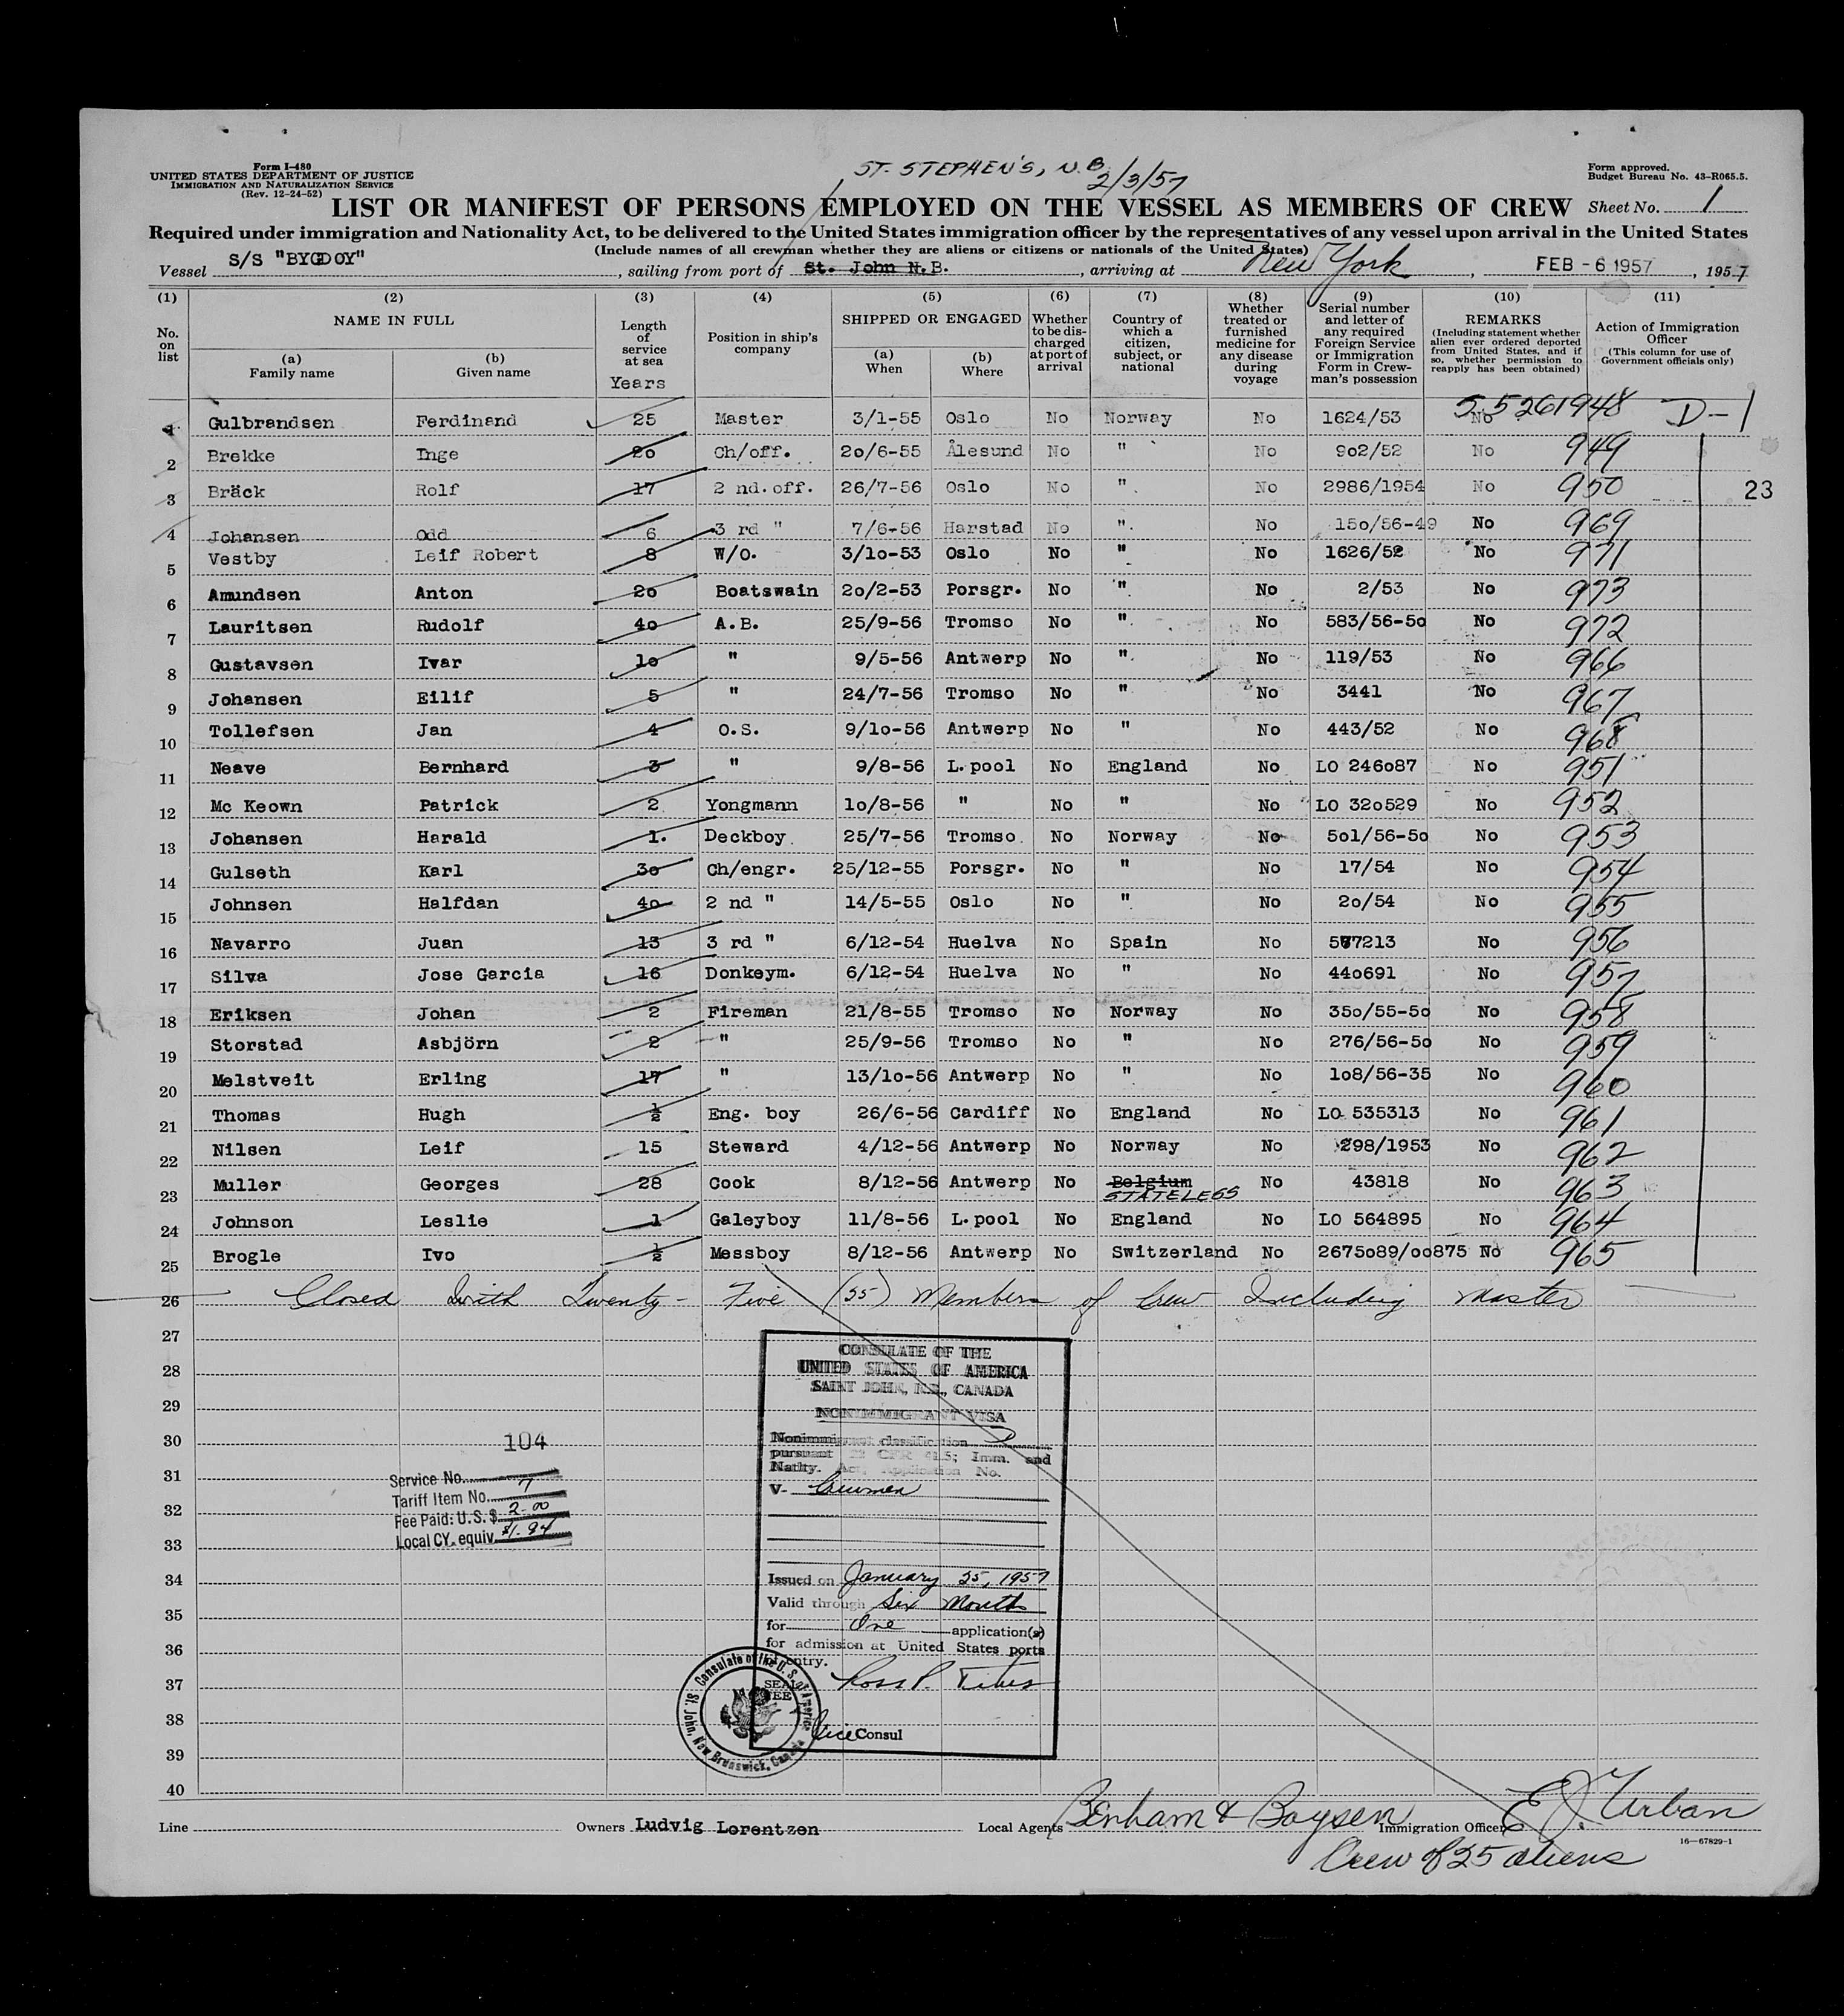 ST. STEPHEN'S, N.B. 2/3/57
Form I-480
UNITED STATES DEPARTMENT OF JUSTICE
IMMIGRATION AND NATURALIZATION SERVICE
(Rev. 12-24-52)
Form approved.
Budget Bureau No. 43-R065.5.
LIST OR MANIFEST OF PERSONS EMPLOYED ON THE VESSEL AS MEMBERS OF CREW Sheet No. 1
Required under immigration and Nationality Act, to be delivered to the United States immigration officer by the representatives of any vessel upon arrival in the United States
(Include names of all crewman whether they are aliens or citizens or nationals of the United States)
Vessel S/S "BYGDOY", sailing from port of St. John N.B., arriving at New York, FEB - 6 1957, 1957
(1) (2) (3) (4) (5) (6) (7) (8) (9) (10) (11)
No. on list
NAME IN FULL
(a) Family name
(b) Given name
Length of service at sea
Years
Position in ship's company
SHIPPED OR ENGAGED
(a) When
(b) Where
Whether to be discharged at port of arrival
Country of which a citizen, subject, or national
Whether treated or furnished medicine for any disease during voyage
Serial number and letter of any required Foreign Service or Immigration Form in Crewman's possession
REMARKS
(Including statement whether alien ever ordered deported from United States, and if so, whether permission to reapply has been obtained)
Action of Immigration Officer
(This column for use of Government officials only)
1 Gulbrandsen Ferdinand 25 Master 3/1-55 Oslo No Norway No 1624/53 No 55261948 D-1
2 Brekke Inge 20 Ch/off. 20/6-55 Ålesund No " No 902/52 No 949
3 Bräck Rolf 17 2 nd.off. 26/7-56 Oslo No " No 2986/1954 No 950 23
4 Johansen Odd 6 3 rd " 7/6-56 Harstad No " No 150/56-49 No 969
5 Vestby Leif Robert 8 W/O. 3/10-53 Oslo No " No 1626/52 No 971
6 Amundsen Anton 20 Boatswain 20/2-53 Porsgr. No " No 2/53 No 973
7 Lauritsen Rudolf 40 A.B. 25/9-56 Tromso No " No 583/56-50 No 972
8 Gustavsen Ivar 10 " 9/5-56 Antwerp No " No 119/53 No 966
9 Johansen Eilif 5 " 24/7-56 Tromso No " No 3441 No 967
10 Tollefsen Jan 4 O.S. 9/10-56 Antwerp No " No 443/52 No 968
11 Neave Bernhard 3 " 9/8-56 L.pool No England No LO 246087 No 951
12 Mc Keown Patrick 2 Yongmann 10/8-56 " No " No LO 320529 No 952
13 Johansen Harald 1. Deckboy 25/7-56 Tromso No Norway No 501/56-50 No 953
14 Gulseth Karl 30 Ch/engr. 25/12-55 Porsgr. No " No 17/54 No 954
15 Johnsen Halfdan 40 2 nd " 14/5-55 Oslo No " No 20/54 No 955
16 Navarro Juan 13 3 rd " 6/12-54 Huelva No Spain No 577213 No 956
17 Silva Jose Garcia 16 Donkeym. 6/12-54 Huelva No " No 440691 No 957
18 Eriksen Johan 2 Fireman 21/8-55 Tromso No Norway No 350/55-50 No 958
19 Storstad Asbjörn 2 " 25/9-56 Tromso No " No 276/56-50 No 959
20 Melstveit Erling 17 " 13/10-56 Antwerp No " No 108/56-35 No 960
21 Thomas Hugh ½ Eng. boy 26/6-56 Cardiff No England No LO 535313 No 961
22 Nilsen Leif 15 Steward 4/12-56 Antwerp No Norway No 298/1953 No 962
23 Muller Georges 28 Cook 8/12-56 Antwerp No Belgium STATELESS No 43818 No 963
24 Johnson Leslie 1 Galeyboy 11/8-56 L.pool No England No LO 564895 No 964
25 Brogle Ivo ½ Messboy 8/12-56 Antwerp No Switzerland No 2675089/00875 No 965
26 Closed With Twenty-Five (25) Members of Crew Including Master
27
28
29
30
31
32
33
34
35
36
37
38
39
40
CONSULATE OF THE
UNITED STATES OF AMERICA
SAINT JOHN, N.B., CANADA
NONIMMIGRANT VISA
Nonimmigrant classification D
pursuant 22 CFR 41.5; Imm. and
Natlty. Act; Application No.
V- Crewmen
Issued on January 25, 1957
Valid through Six Months
for One application(s)
for admission at United States ports
of entry.
Vice Consul
SEAL
FEE
Consulate of the U.S. of America
St. John, New Brunswick, Canada
104
Service No.
Tariff Item No. 7
Fee Paid: U.S. $ 2.00
Local CY. equiv. $1.94
Line Owners Ludvig Lorentzen Local Agents Benham & Boysen Immigration Officer E J. Urban
16—67829-1
Crew of 25 aliens